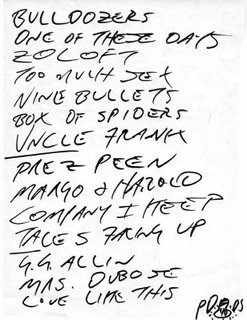 BULLDOZERS
ONE OF THESE DAYS
ZOLOFT
TOO MUCH SEX
NINE BULLETS
BOX OF SPIDERS
UNCLE FRANK
PREZ PEEN
MARGO & HAROLD
COMPANY I KEEP
TALES FACING UP
G.G. ALLIN
MRS. DUBOSE
LOVE LIKE THIS